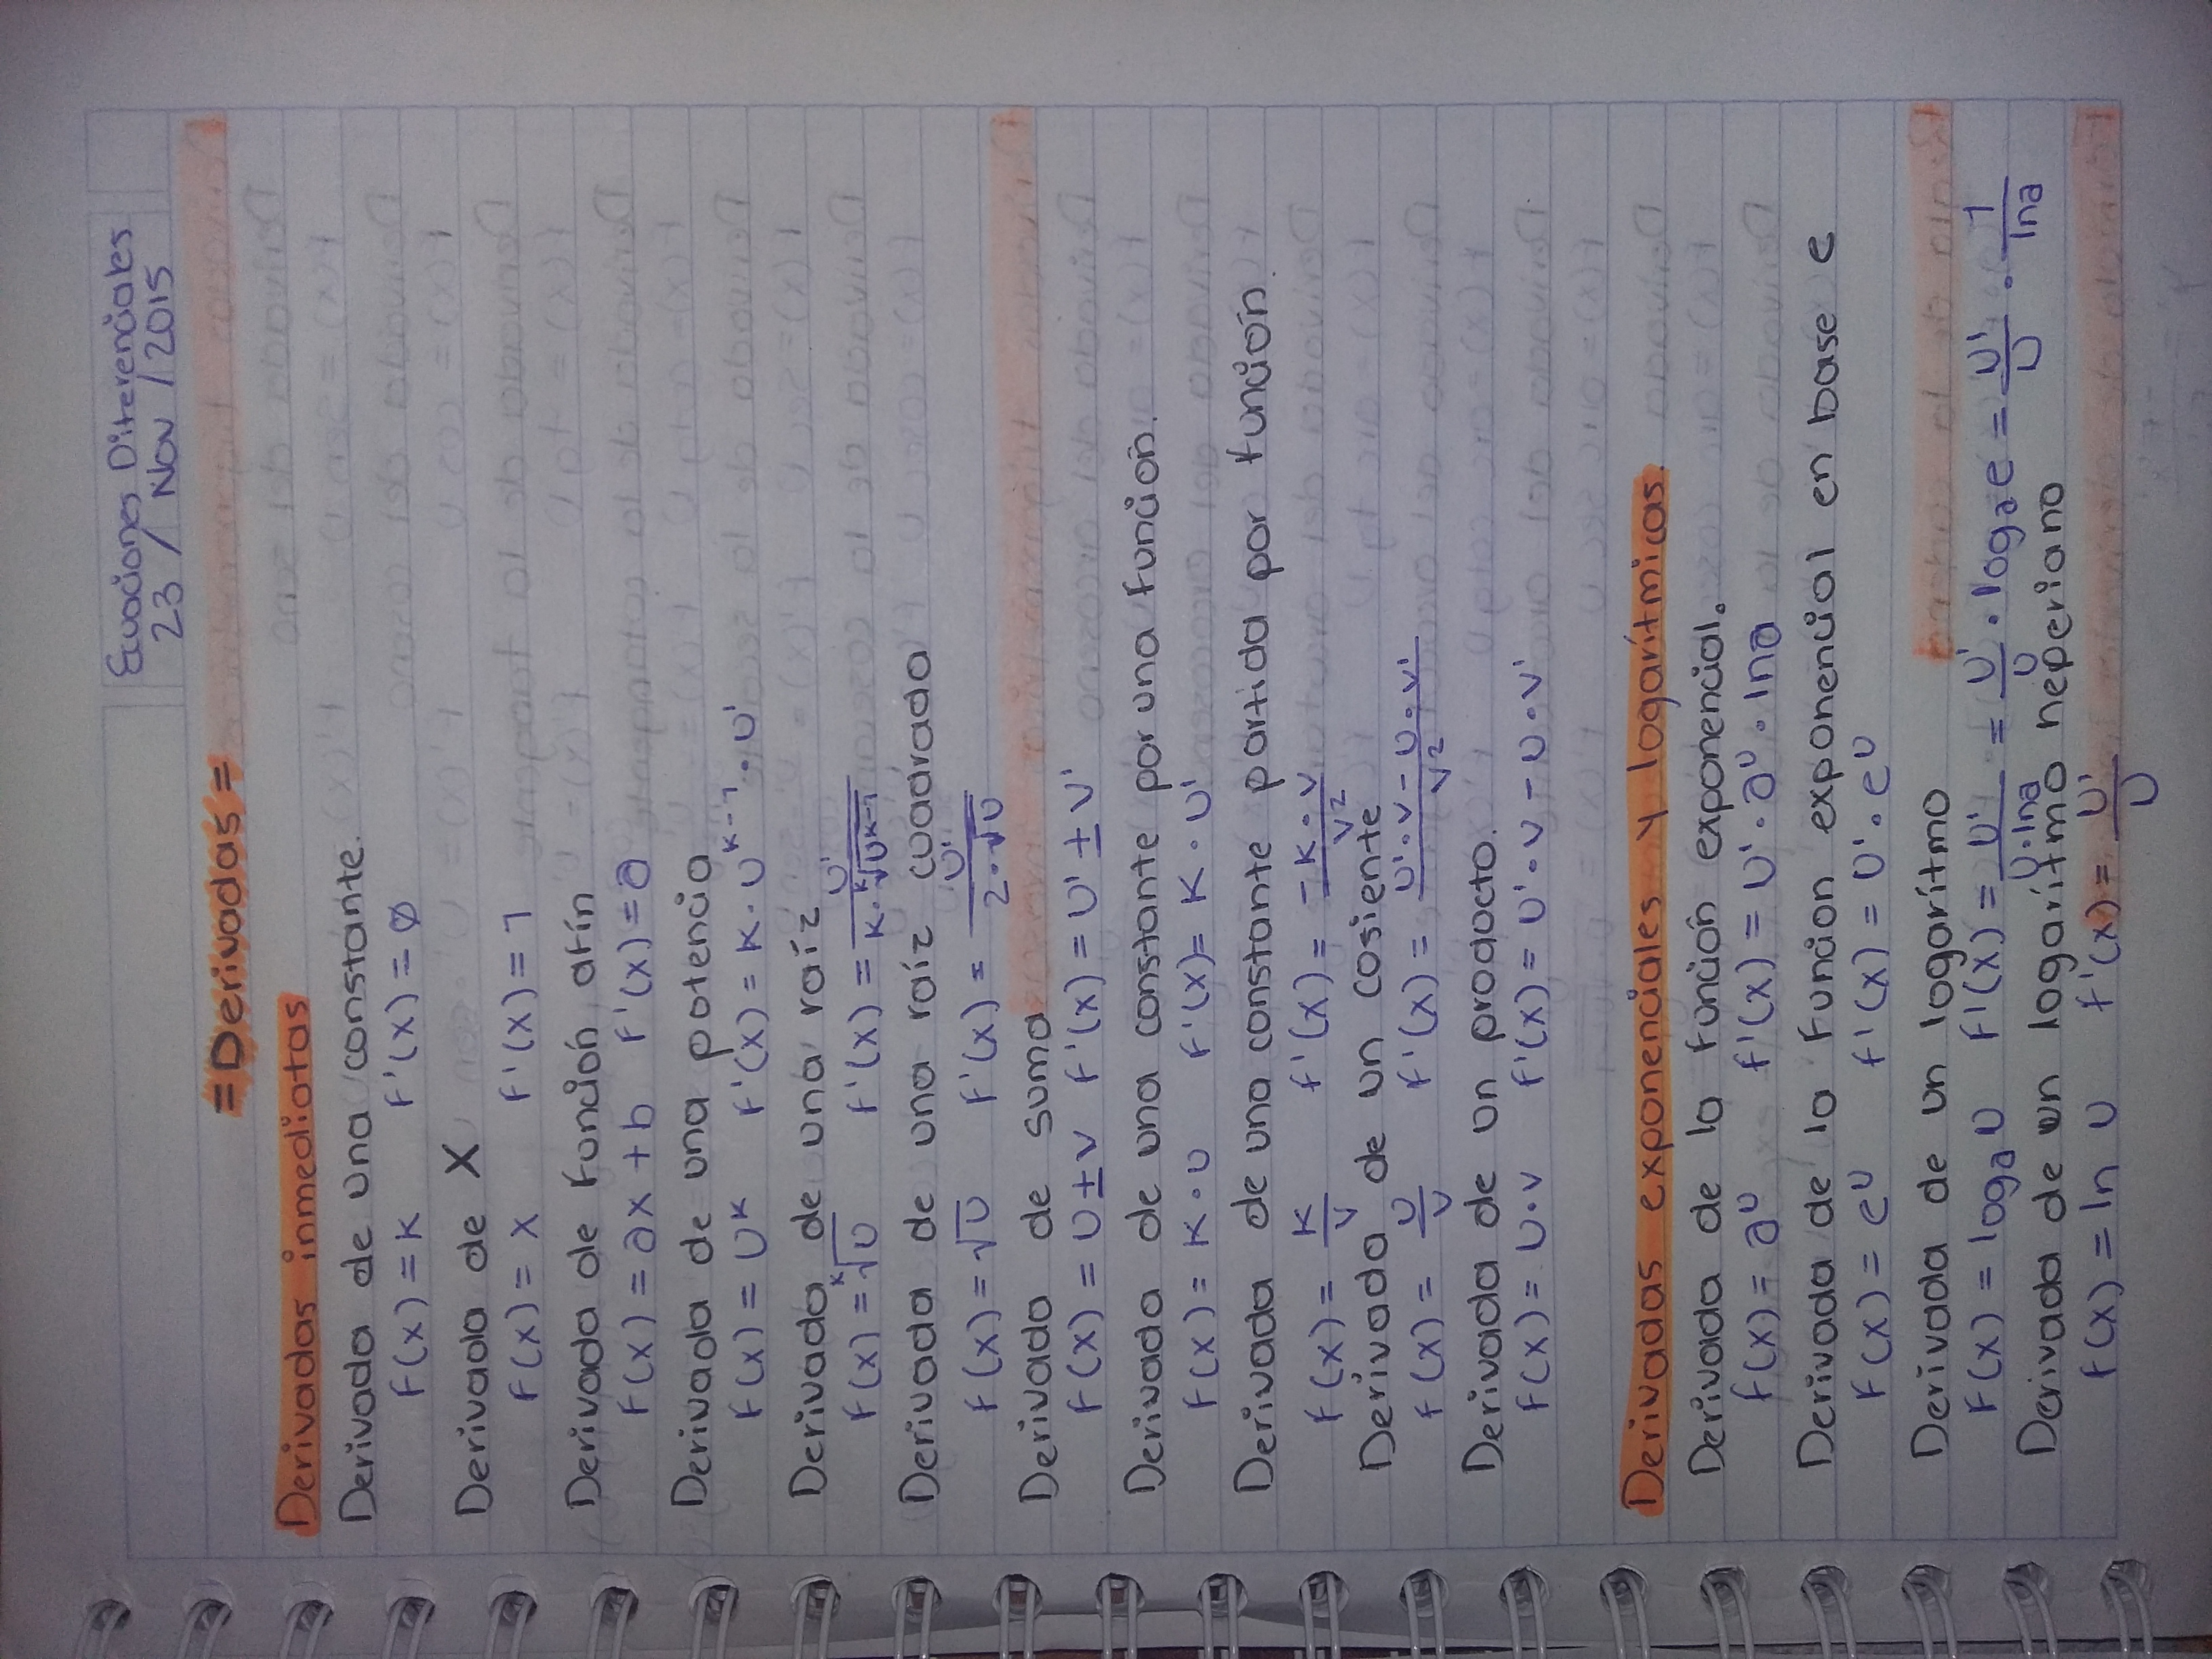 Ecuaciones Diferenciales
23 / Nov / 2015
= Derivadas =
Derivadas inmediatas
Derivada de una constante.
F(x) = K F'(x) = Ø
Derivada de X
F(x) = x F'(x) = 1
Derivada de función afín
F(x) = ax + b F'(x) = a
Derivada de una potencia
F(x) = U^K F'(x) = K · U^(K-1) · U'
Derivada de una raíz
F(x) = ᴷ√U F'(x) = U' / (K · ᴷ√U^(K-1))
Derivada de una raíz cuadrada
F(x) = √U F'(x) = U' / (2 · √U)
Derivada de suma
F(x) = U ± V F'(x) = U' ± V'
Derivada de una constante por una función.
F(x) = K · U F'(x) = K · U'
Derivada de una constante partida por función.
F(x) = K / V F'(x) = -K · V / V²
Derivada de un cosiente
F(x) = U / V F'(x) = U' · V - U · V' / V²
Derivada de un producto.
F(x) = U · V F'(x) = U' · V - U · V'
Derivadas exponenciales y logarítmicas.
Derivada de la función exponencial.
f(x) = a^U f'(x) = U' · a^U · lna
Derivada de la Funcion exponencial en base e
F(x) = e^U f'(x) = U' · e^U
Derivada de un logarítmo
F(x) = logₐ U F'(x) = U' / (U · lna) = U' / U · logₐ e = U' / U · 1 / lna
Derivada de un logarítmo neperiano
F(x) = ln U f'(x) = U' / U